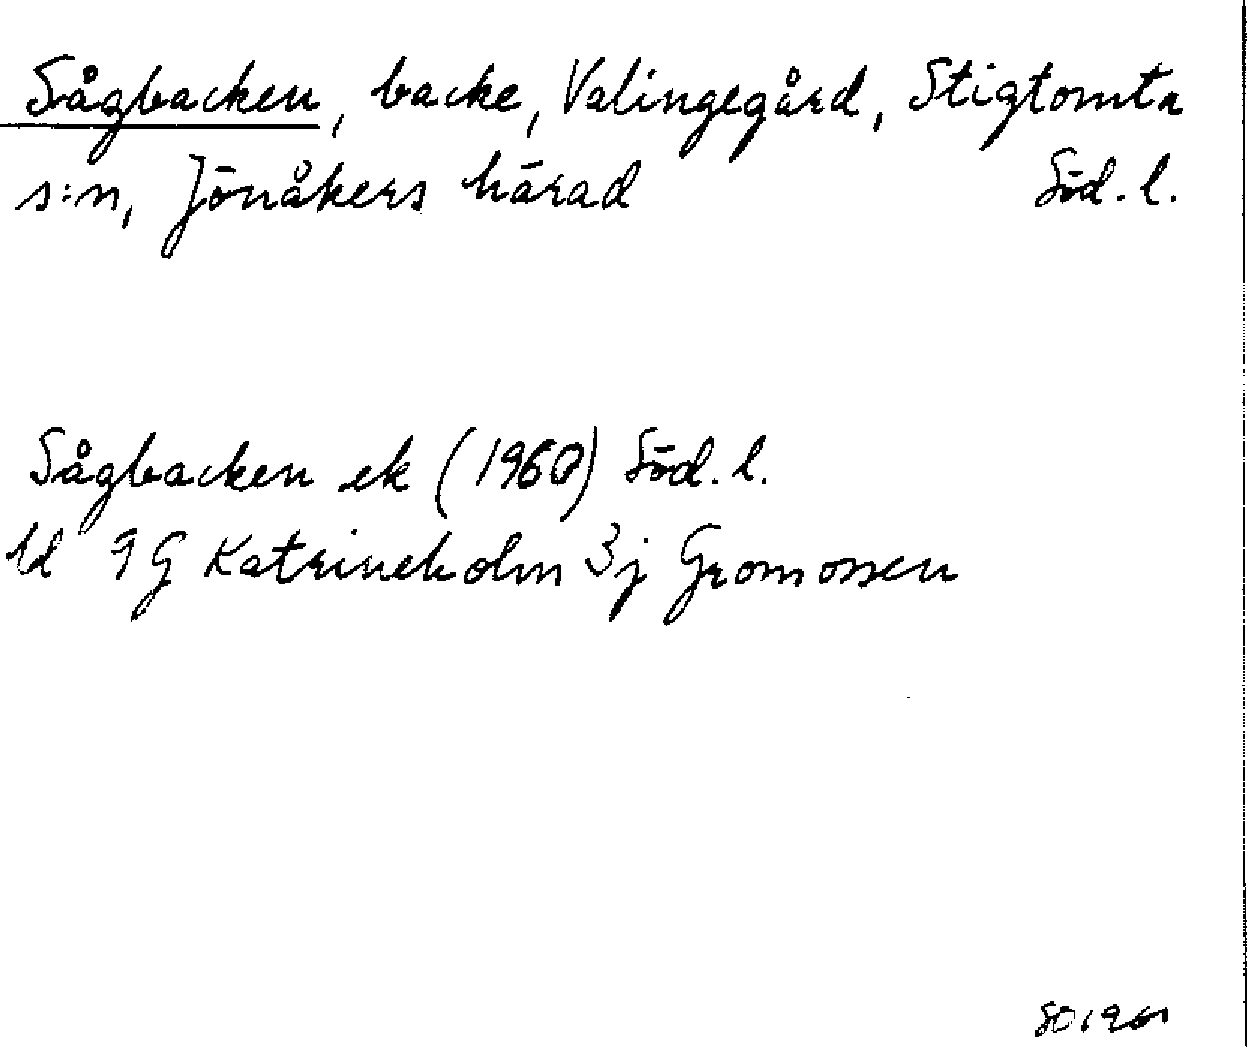 Sågbacken, backe, Valingegård, Stigtomta
s:n, Jönåkers härad Söd. l.
Sågbacken ek (1960) Söd. l.
bl 9 G Katrineholm 3 j Gromossen